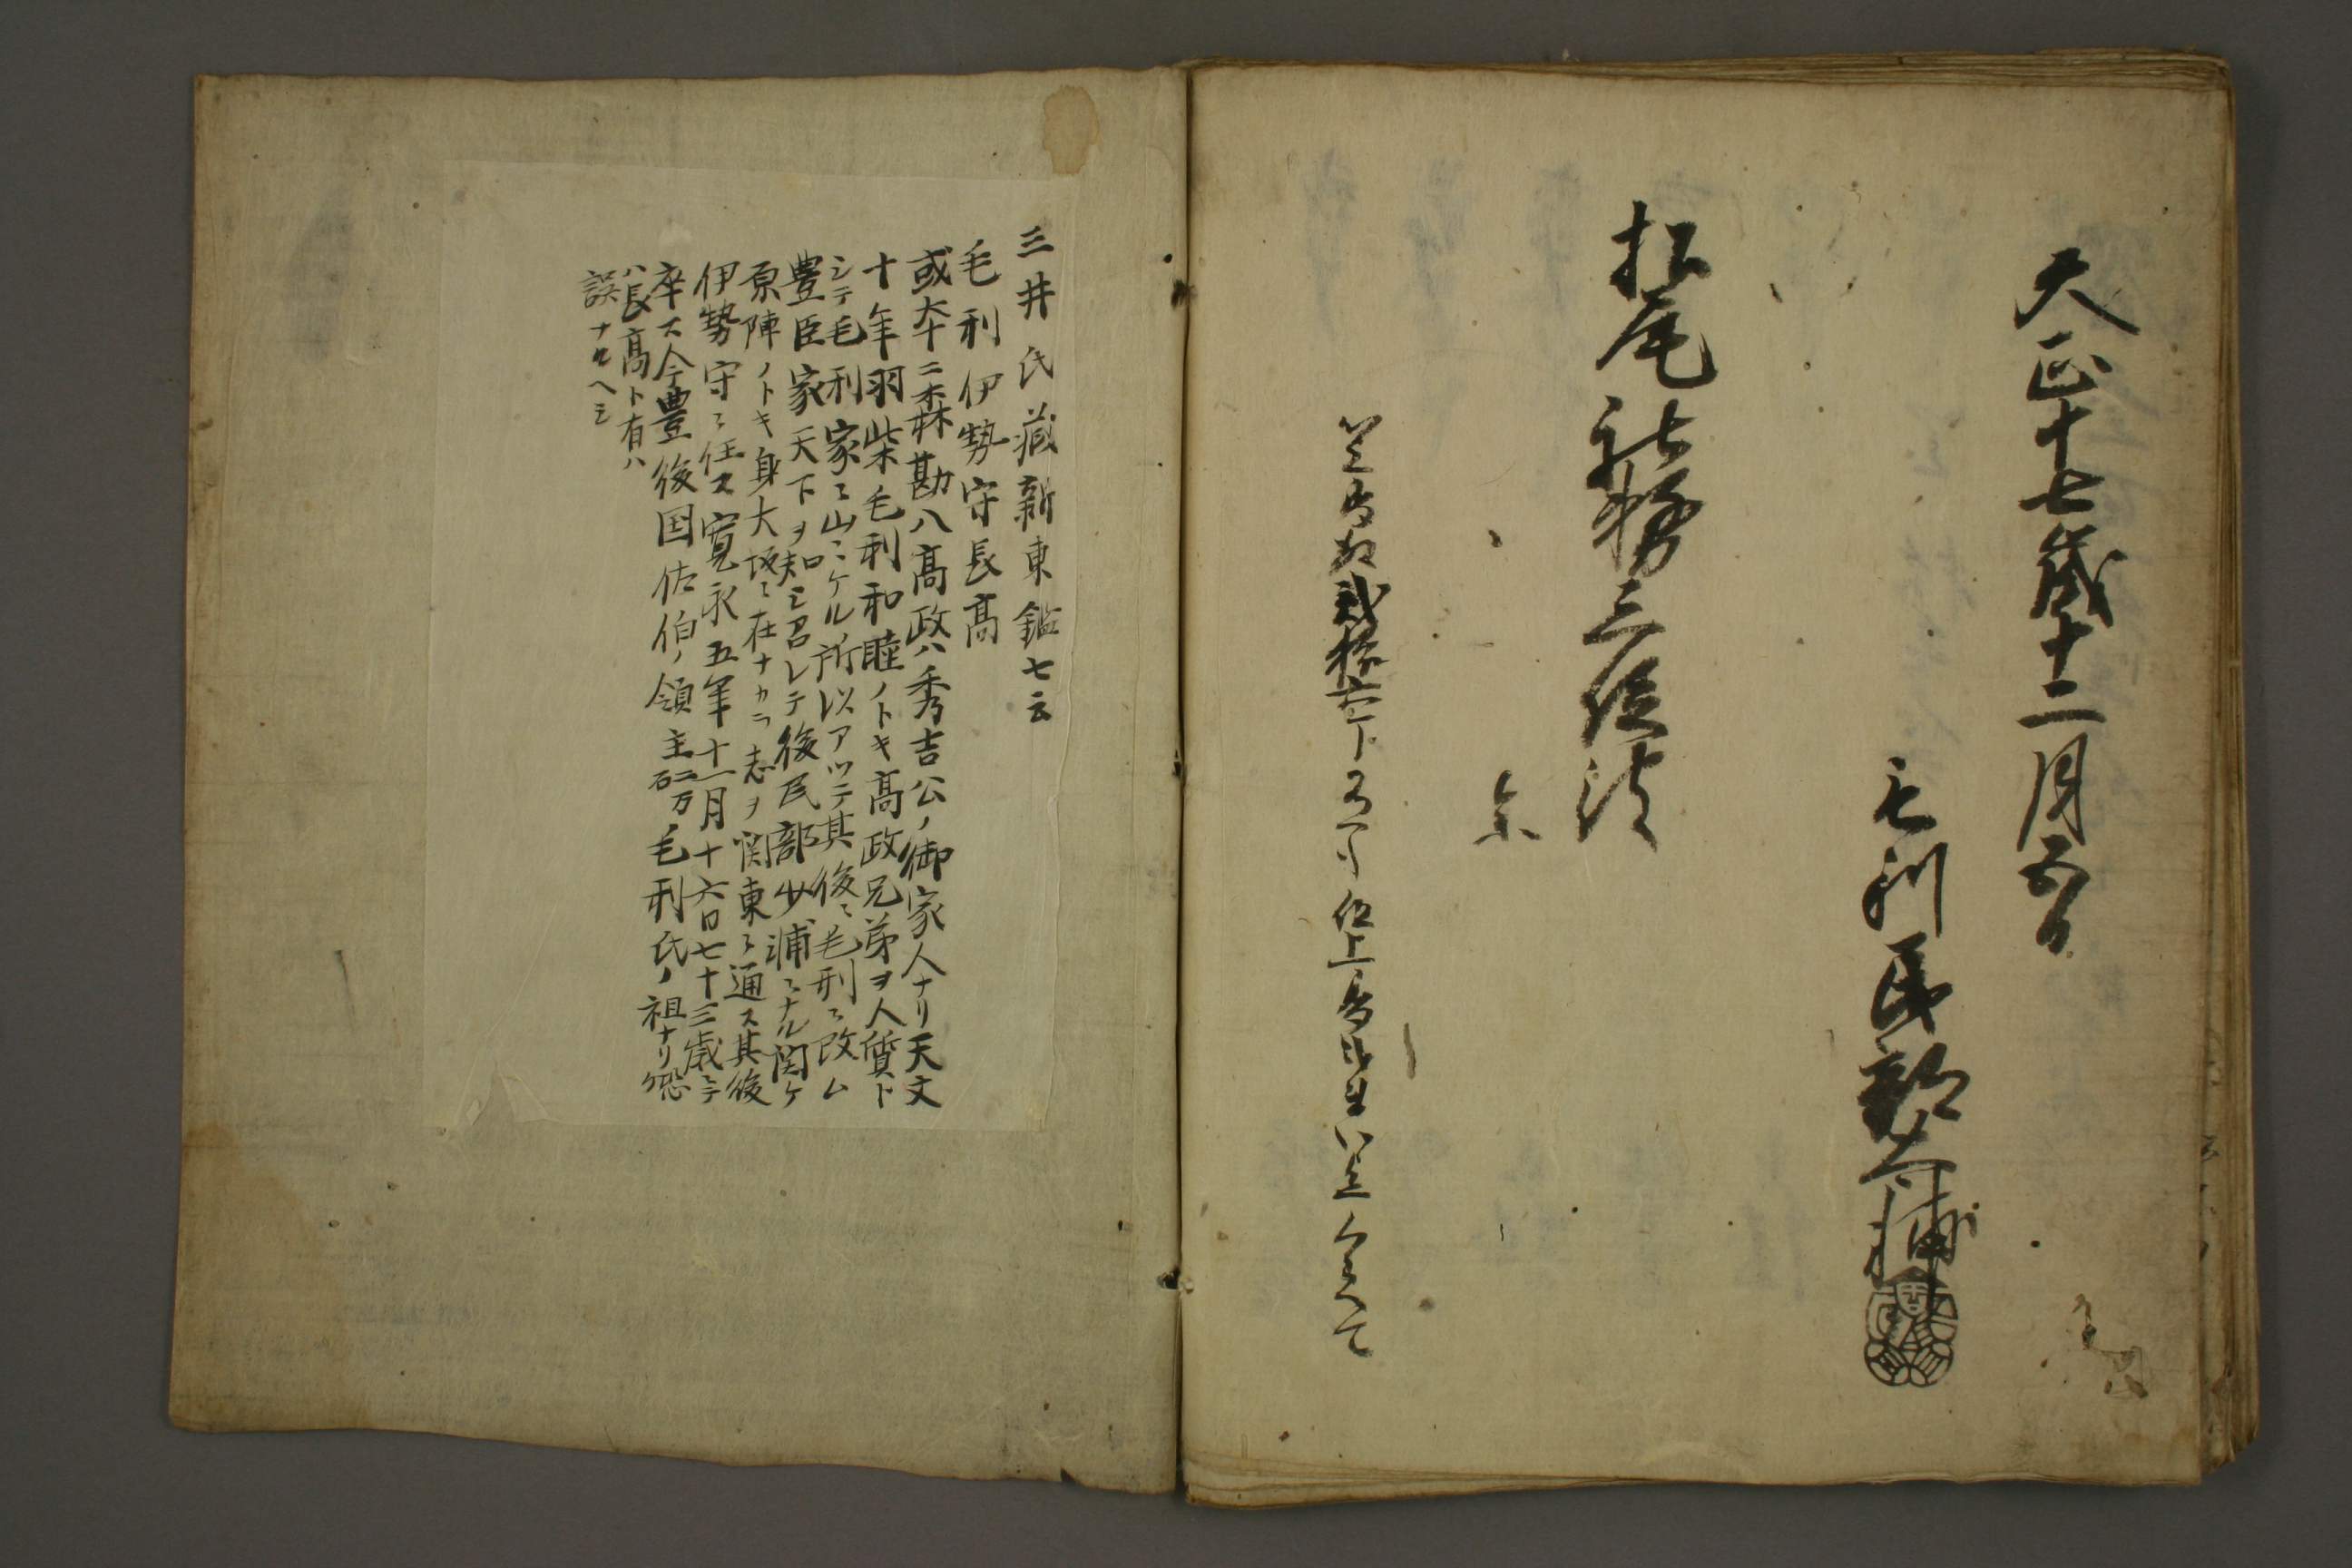 天正十七歳十二月五日
毛利民部大輔
松尾社務三位殿
参
三井氏蔵新東鑑七云
毛利伊勢守長高
或本ニ森勘八高政ハ秀吉公ノ御家人ナリ天文
十年羽柴毛利和睦ノトキ高政兄弟ヲ人質ト
シテ毛利家ニ出シケル所以アツテ其後ニ毛利ニ改ム
豊臣家天下ヲ知シ召レテ後民部少浦ニナル関ケ
原陣ノトキ身大坂ニ在ナカラ志ヲ関東ニ通ス其後
伊勢守ニ任ス寛永五年十一月十六日七十三歳ニテ
卒ス今豊後国佐伯ノ領主二万石毛利氏ノ祖ナリ恐ク
ハ長高ト有ハ
誤ナルヘシ